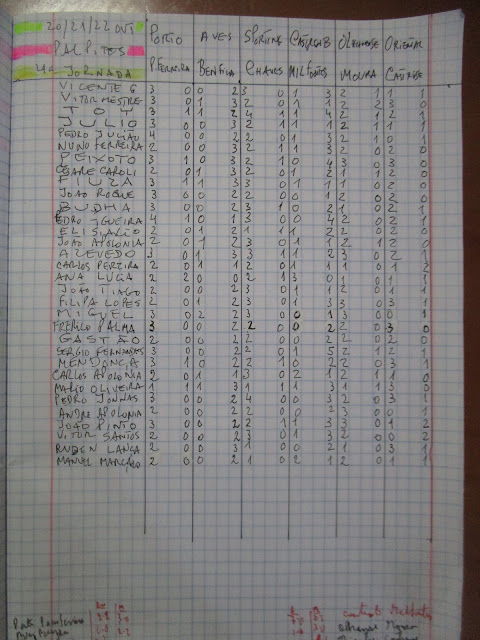 20/21/22 OUT PORTO AVES SPORTING OLHNENSE ORIENTAL
PALPITES
4ª JORNADA P.FERREIRA BENFICA CHAVES MILFONTES MOURA CASTRENSE
VICENTE G 3 0 0 2 3 0 1 3 2 1 1 1
VITOR MESTRE 3 0 1 3 2 0 1 1 2 2 3 0
TOY 3 1 1 2 4 1 1 4 2 1 2 1
JULIO 3 0 0 3 2 1 1 1 2 1 1 1
PEDRO JULIÃO 4 0 0 2 2 0 1 3 2 1 0 1
NUNO FERREIRA 2 0 0 3 2 1 1 3 2 0 2 0
PEIXOTO 3 1 0 3 2 1 0 4 3 0 3 0
CESARE CAROLI 2 0 1 3 2 0 1 2 1 1 2 0
FIUZA 3 1 1 3 3 0 1 1 1 0 2 0
JOAO ROQUE 3 0 0 2 2 0 0 1 2 0 2 0
BUDHA 3 0 0 2 3 1 0 2 0 0 2 1
PEDRO 4 1 0 1 3 0 0 4 2 0 2 1
ELISIARIO 2 0 1 2 1 1 1 2 2 0 2 0
JOAO APOLONIA 2 0 1 2 3 0 1 1 2 1 2 0
AZEVEDO 3 0 1 3 3 1 1 2 3 0 2 1
CARLOS PEREIRA 2 0 1 1 2 0 1 1 1 0 1 2
ANA LUCA 2 2 0 0 2 1 3 0 1 0 1 1
JOAO TIAGO 2 0 0 2 2 0 1 1 2 0 1 1
FILIPA LOPES 2 0 1 2 3 0 1 3 3 0 3 1
MIGUEL 3 0 2 2 3 0 0 1 3 0 0 1
PALMA 3 0 0 2 2 0 0 2 2 0 3 0
GASTÃO 2 0 0 2 2 0 0 2 2 0 2 0
SERGIO FERNANDES 3 0 0 2 2 0 1 5 2 1 2 1
MENDONÇA 3 1 0 1 2 1 0 2 2 0 3 1
CARLOS APOLONIA 2 0 1 1 3 0 2 1 2 1 1 0
MARIO OLIVEIRA 1 1 1 3 1 1 1 3 1 1 3 3
PEDRO JONNAS 3 0 0 2 4 0 0 3 3 0 3 0
ANDRE APOLONIA 2 0 0 2 2 0 0 2 3 0 0 1
JOAO PINTO 3 0 0 2 2 1 1 3 3 0 1 2
VITOR SANTOS 2 0 0 2 3 0 1 3 2 0 0 2
RUBEN LANÇA 2 0 0 3 1 0 0 2 1 0 0 1
MANUEL MARÇALO 2 0 0 2 1 0 2 1 2 0 1 1